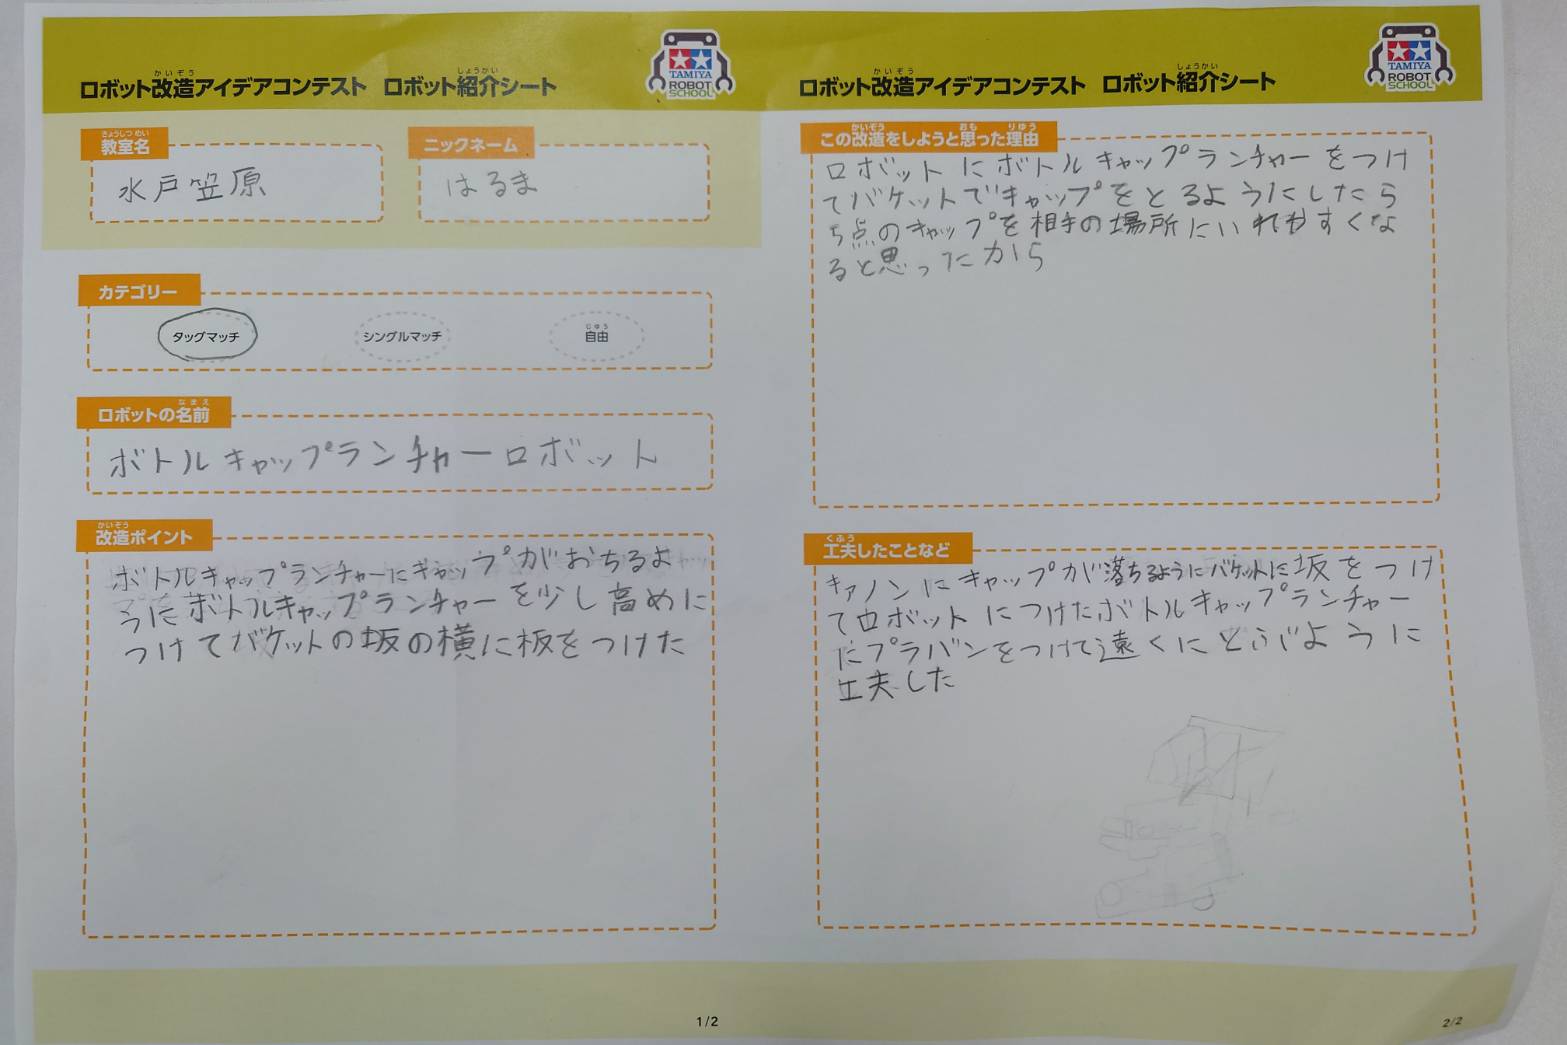 ロボット改造アイデアコンテスト ロボット紹介シート
TAMIYA
ROBOT
SCHOOL
教室名
水戸笠原
ニックネーム
はるま
カテゴリー
タッグマッチ
シングルマッチ
自由
ロボットの名前
ボトルキャップランチャーロボット
改造ポイント
ボトルキャップランチャーにキャップがおちるよ
うにボトルキャップランチャーを少し高めに
つけてバケットの坂の横に板をつけた
1/2
ロボット改造アイデアコンテスト ロボット紹介シート
TAMIYA
ROBOT
SCHOOL
この改造をしようと思った理由
ロボットにボトルキャップランチャーをつけ
てバケットでキャップをとるようにしたら
5点のキャップを相手の場所にいれやすくな
ると思ったから
工夫したことなど
キァノンにキャップが落ちるようにバケットに坂をつけ
てロボットにつけたボトルキャップランチャー
にプラバンをつけて遠くにとぶように
工夫した
2/2